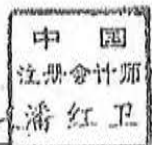 中国
注册会计师
潘红卫